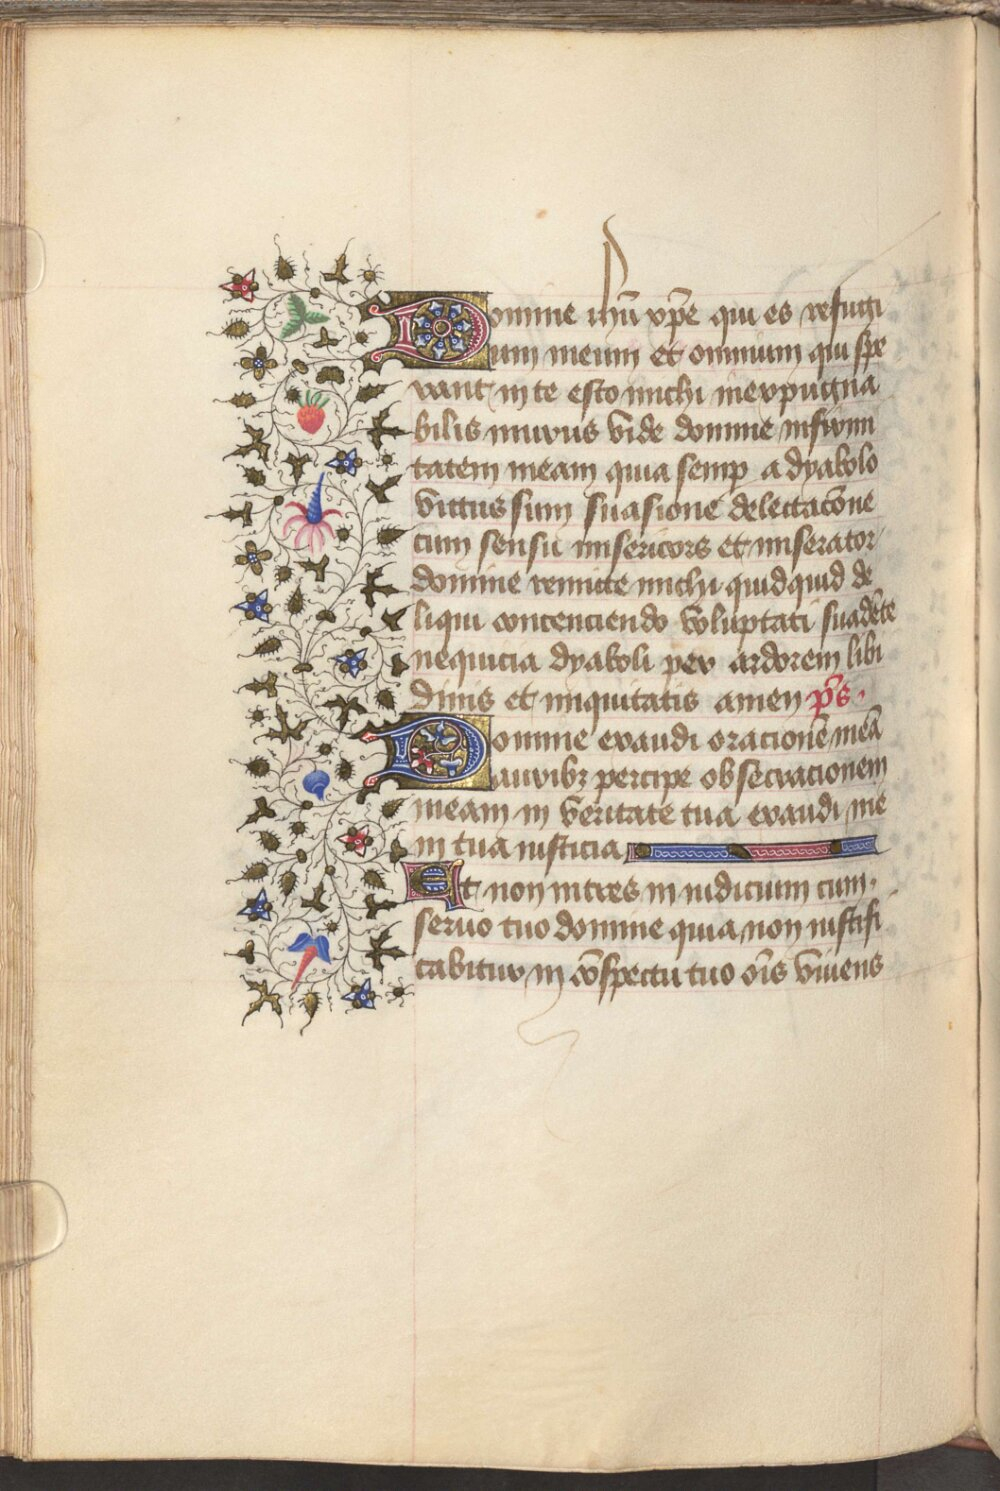 Domine ihū xp̄e qui es refugi
um meum et omnium qui spe
rant in te esto michi inexpugna
bilis murus vide domine infirmi
tatem meam quia semp a dyabolo
victus sum suasione delectacōne
cum sensu misericors et miserator
domine remitte michi quidquid de
liqui concenciendo voluptati suadēte
nequicia dyaboli per ardorem libi
dinis et iniquitatis amen p̄s.
Domine exaudi oracionē meā
auribꝫ percipe obsecracionem
meam in veritate tua exaudi me
in tua iusticia
Et non intres in iudicium cum.
seruo tuo domine quia non iustifi
cabitur in cōspectu tuo oīs viuens